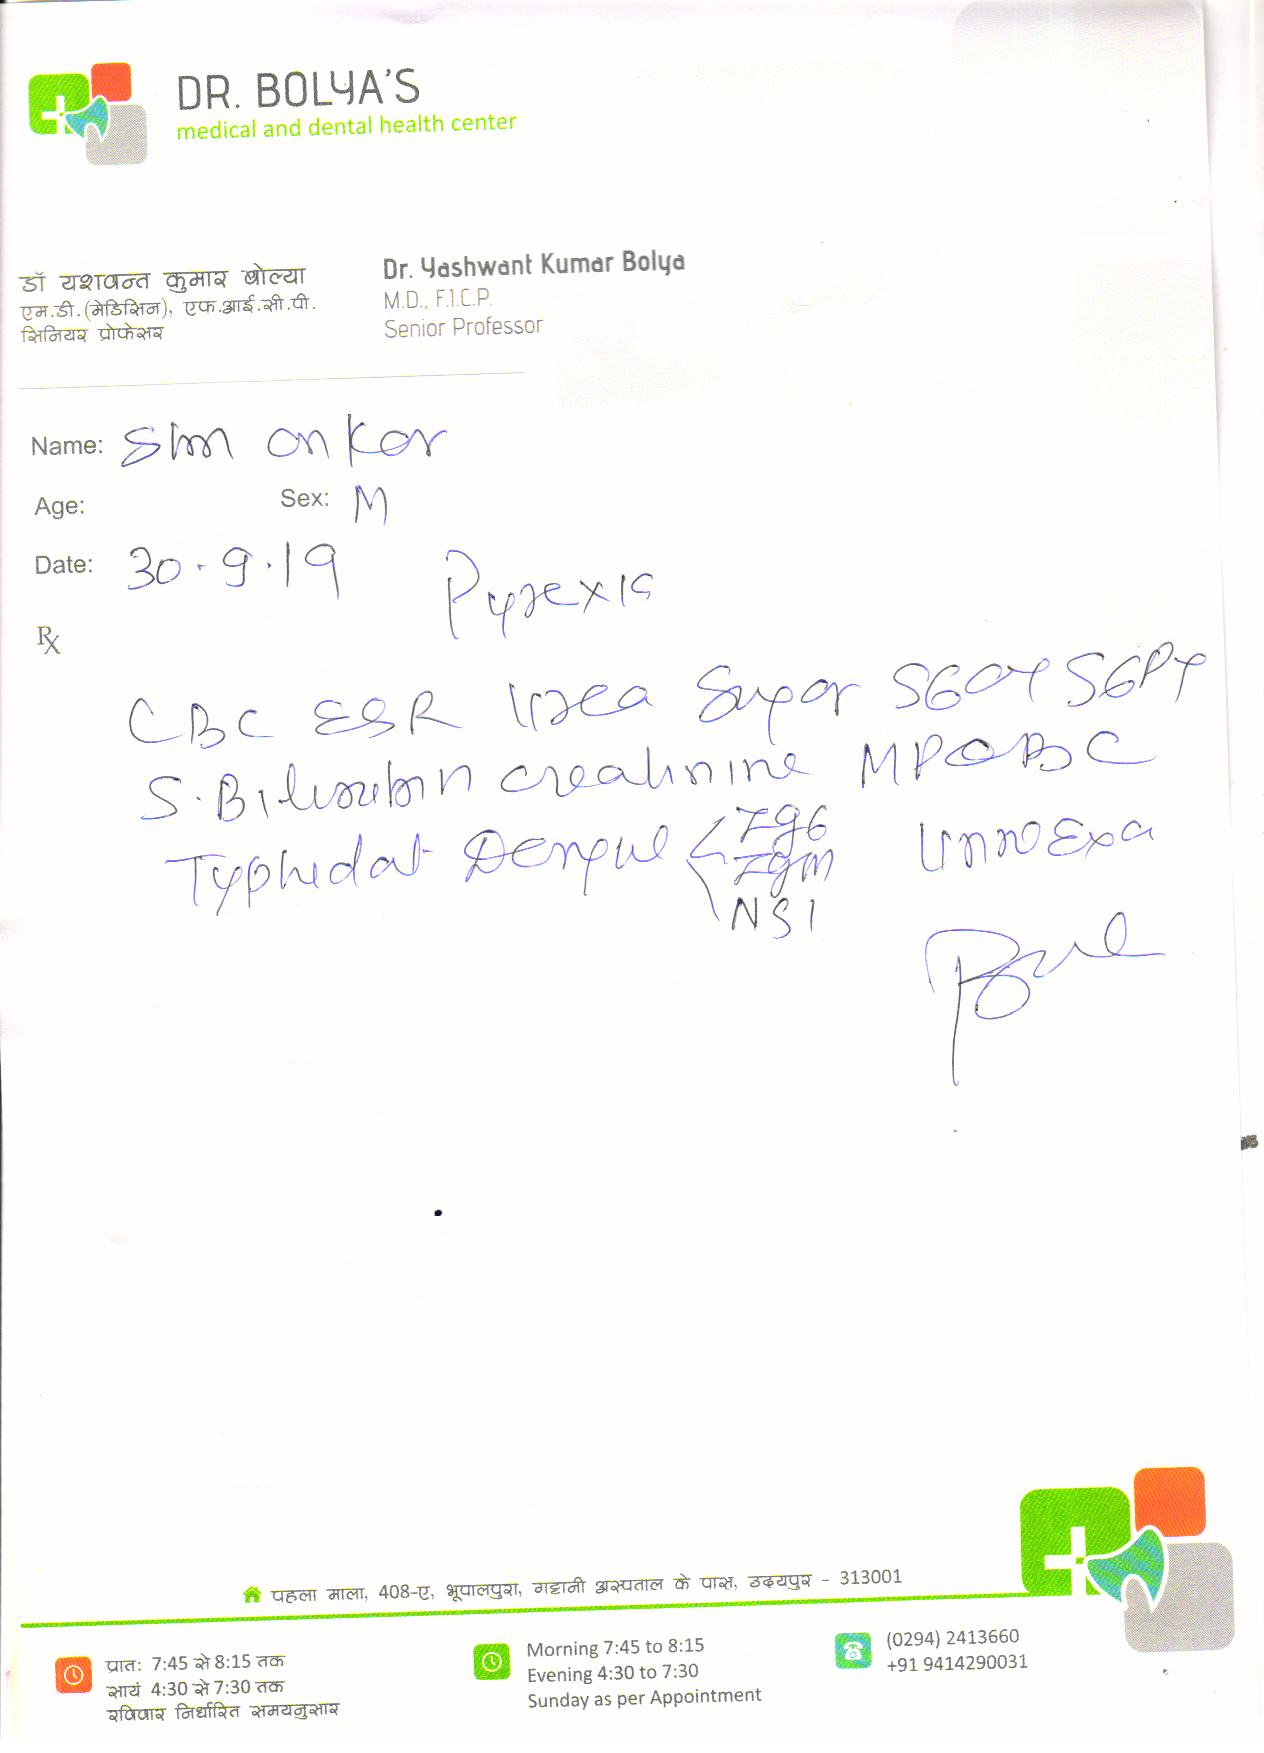 DR. BOLYA'S
medical and dental health center
डॉ यशवन्त कुमार बोल्या
एम.डी.(मेडिसिन), एफ.आई.सी.पी.
सिनियर प्रोफेसर
Dr. Yashwant Kumar Bolya
M.D., F.I.C.P.
Senior Professor
Name: Slm onkar
Age: Sex: M
Date: 30.9.19
Pyrexia
Rx
CBC ESR Urea Sugar SGOT SGPT
S. Bilirubin creatinine MP QBC
Typhidot Dengue IgG
IgM
NS1
Urine Exa
पहला माला, 408-ए, भूपालपुरा, गट्टानी अस्पताल के पास, उदयपुर - 313001
प्रातः 7:45 से 8:15 तक
सायं 4:30 से 7:30 तक
रविवार निर्धारित समयनुसार
Morning 7:45 to 8:15
Evening 4:30 to 7:30
Sunday as per Appointment
(0294) 2413660
+91 9414290031